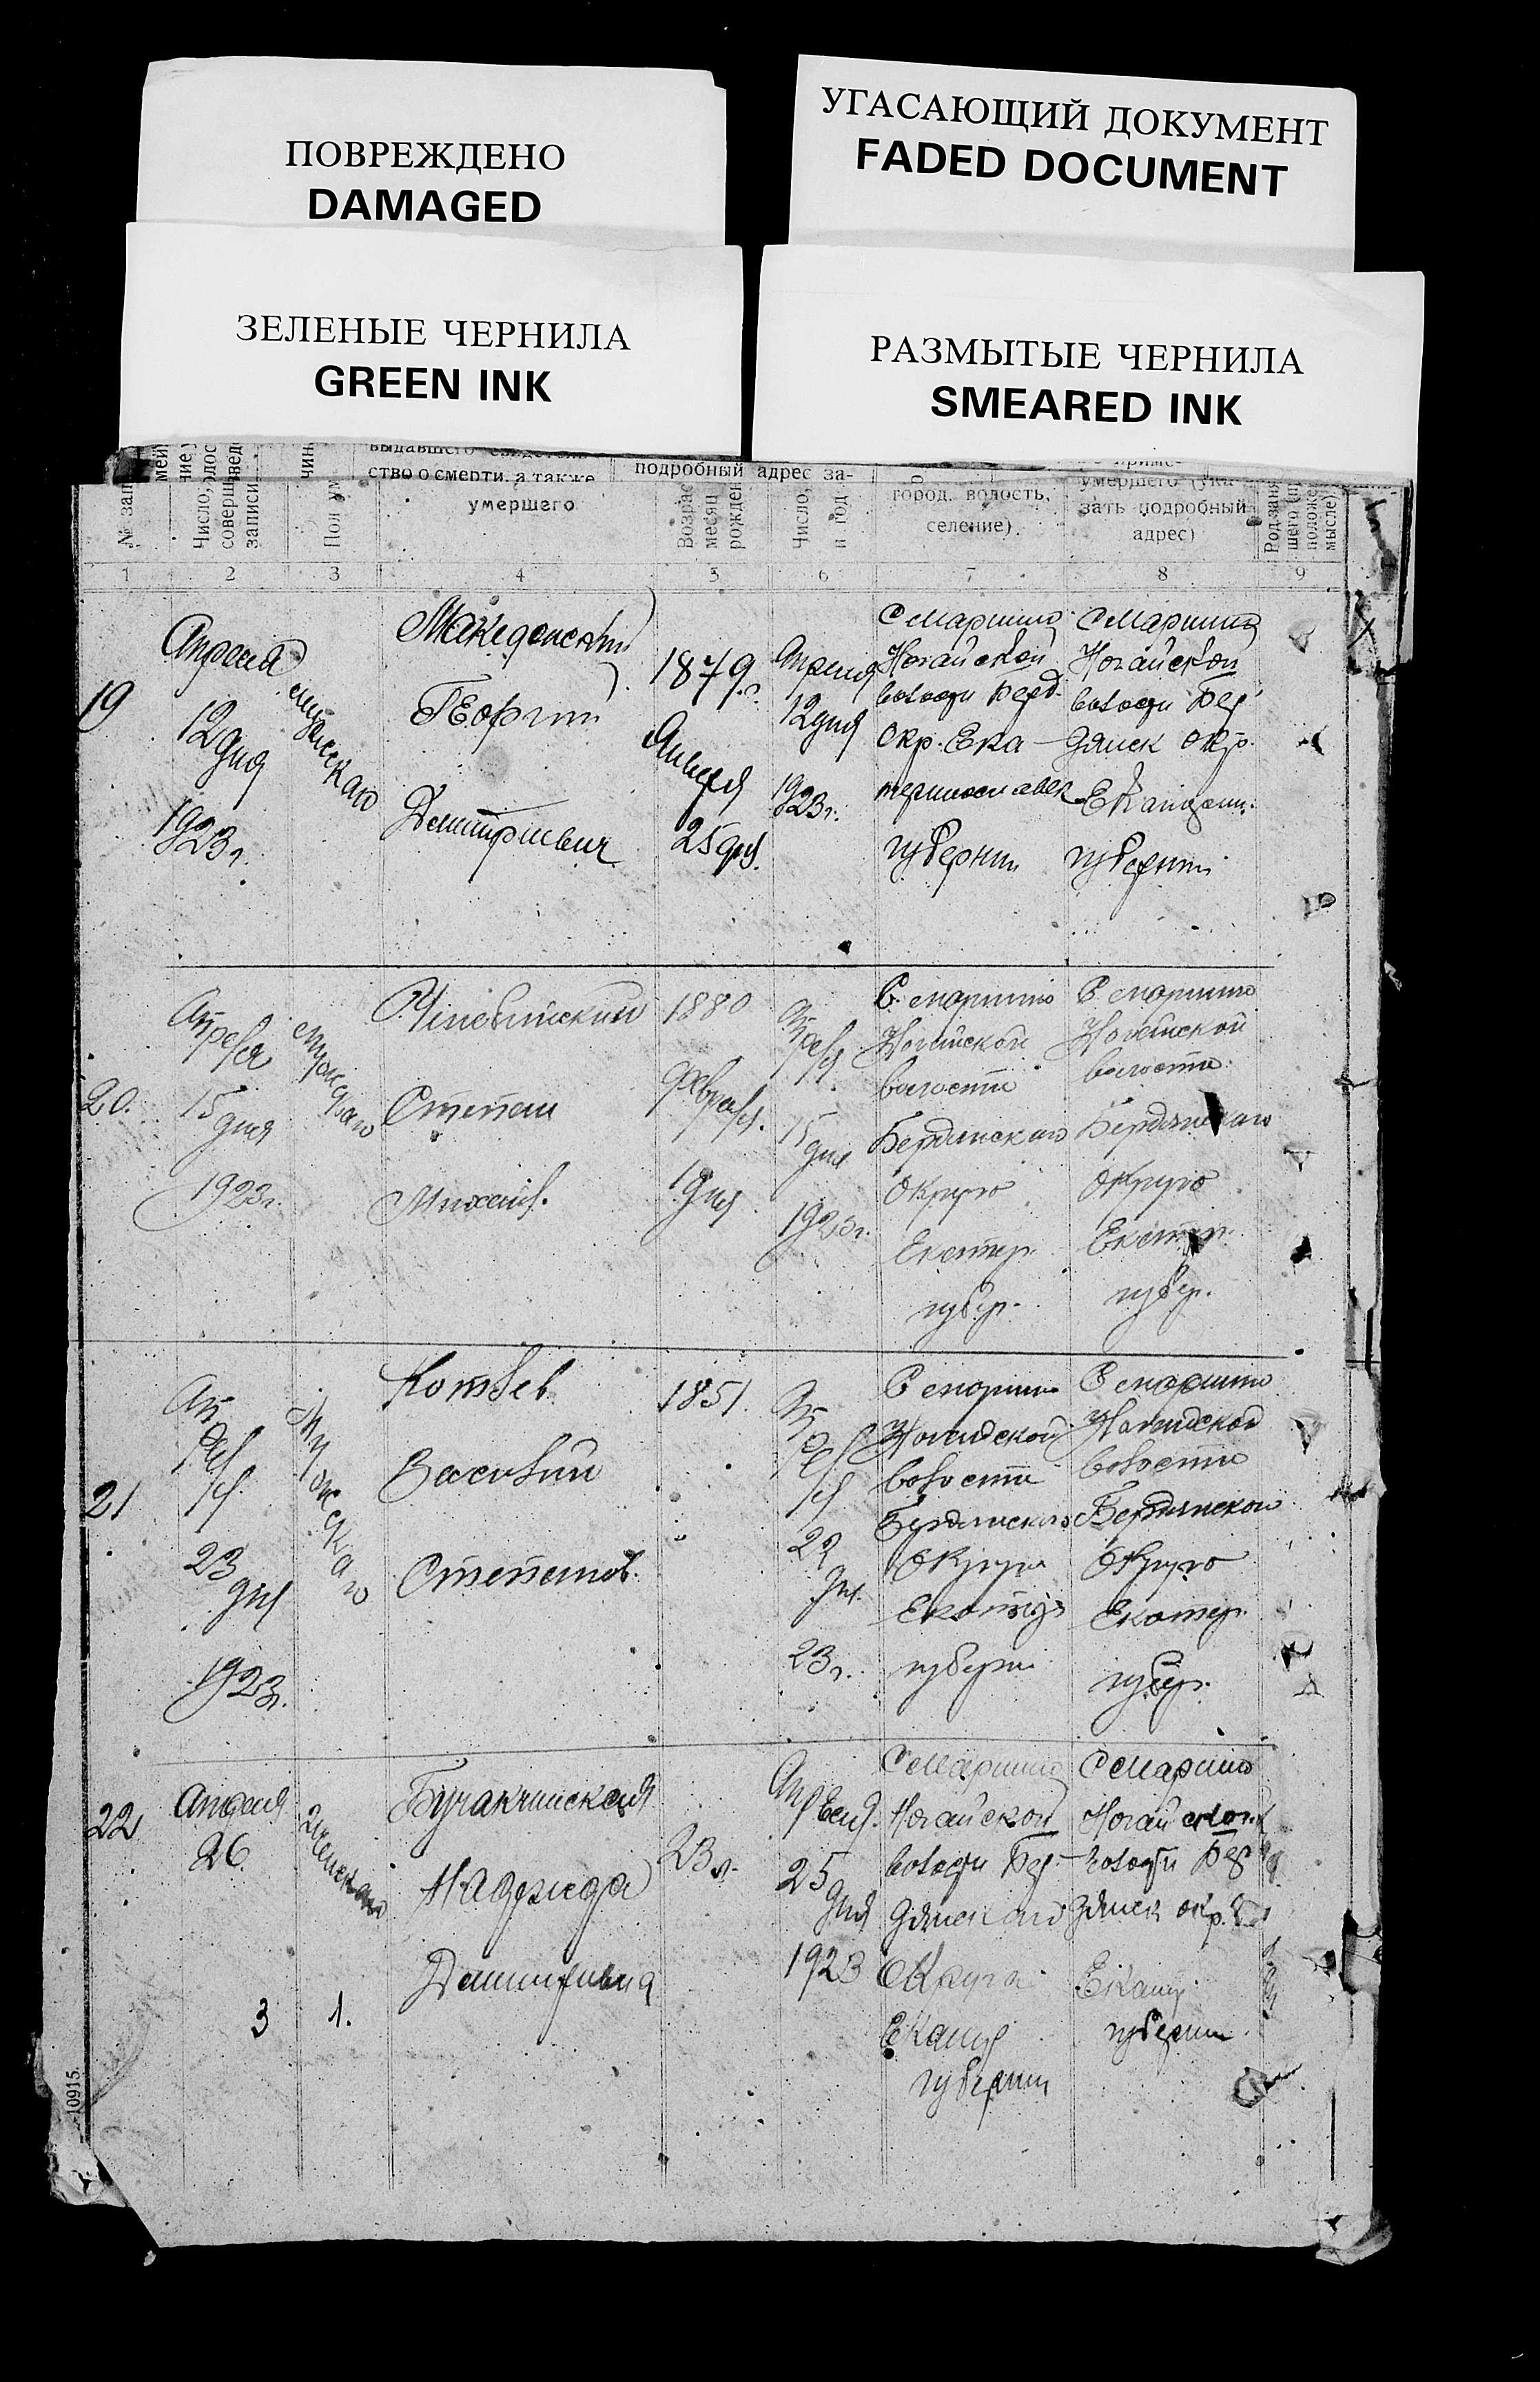 ПОВРЕЖДЕНО
DAMAGED
УГАСАЮЩИЙ ДОКУМЕНТ
FADED DOCUMENT
ЗЕЛЕНЫЕ ЧЕРНИЛА
GREEN INK
РАЗМЫТЫЕ ЧЕРНИЛА
SMEARED INK
ство о смерти, а также
умершего
подробный адрес за-
город, волость,
селение).
умершего (ука-
зать подробный
адрес)
№ зап
Число,
соверш
записи
Пол ум
Возрас
месяц
рожден
Число,
и год
Род заня
шего (п
положе
мысле)
1 2 3 4 5 6 7 8 9
19
Апреля
12 дня
1923 г.
мужскаго
Македонский
Георгий
Дмитриевич
1879 г.
Января
25 дня
Апреля
12 дня
1923 г.
С Марьино
Ногайской
волости Берд.
Окр. Ека-
теринославск
губернии
С Марьино
Ногайской
волости Бер
дянск окр.
губернии
20.
Апреля
15 дня
1923 г.
мужскаго
Степан
Михайл.
1880
Февраля
1 дня
Апреля
15 дня
1923 г.
С. Марьино
Ногайской
волости
Бердянскаго
Округа
Екатер.
губер.
С. Марьино
Ногайской
волости
Бердянскаго
Округа
Екатер.
губер.
21
Апреля
23 дня
1923 г.
мужскаго
Котлев
Василий
Степанов.
1851.
Апреля
22 дня
23 г.
С Марьино
Ногайской
волости
Бердянскаго
Округа
Екатер
губерни
С Марьино
Ногайской
волости
Бердянской
Округа
Екатер.
губер.
22
Апреля
26
женскаго
Бучакчийская
Надежда
Дмитривна
23 л.
Апреля
25 дня
1923
С Марьино
Ногайской
волости Бер-
дянскаго
Округа
Екатер
губернии
С Марьино
Ногайской
волости Бер
дянск окр.
Екатер
губернии
3 1.
10915